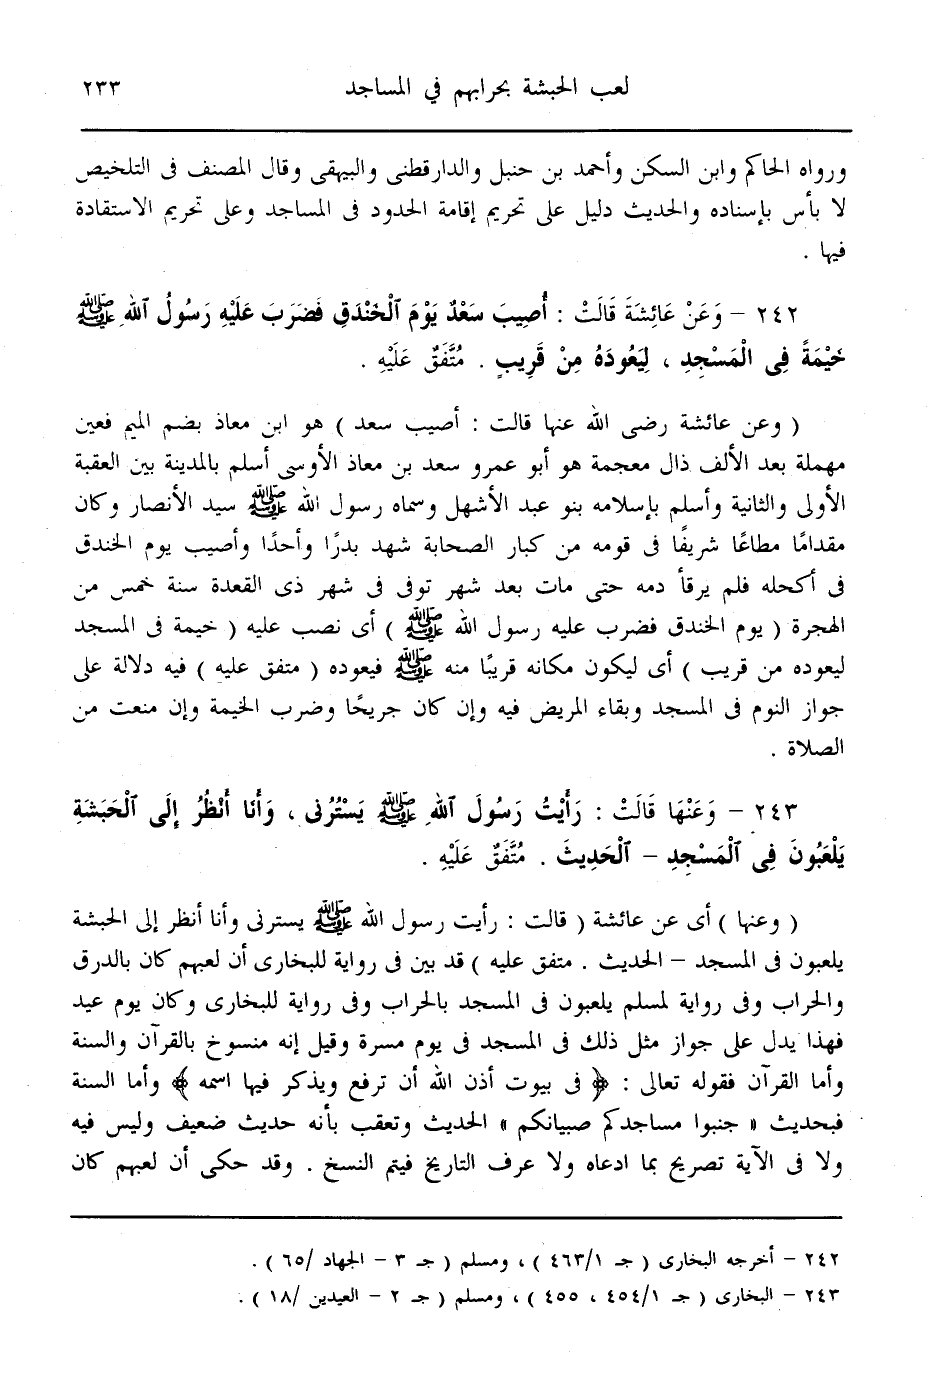 لعب الحبشة بحرابهم في المساجد ٢٣٣
ورواه الحاكم وابن السكن وأحمد بن حنبل والدارقطنى والبيهقى وقال المصنف فى التلخيص
لا بأس بإسناده والحديث دليل على تحريم إقامة الحدود فى المساجد وعلى تحريم الاستقادة
فيها .
٢٤٢ – وَعَنْ عَائِشَةَ قَالَتْ : أُصِيبَ سَعْدٌ يَوْمَ ٱلْخَنْدَقِ فَضَرَبَ عَلَيْهِ رَسُولُ ٱللهِ ﷺ
خَيْمَةً فِى الْمَسْجِدِ ، لِيَعُودَهُ مِنْ قَرِيبٍ . مُتَّفَقٌ عَلَيْهِ .
( وعن عائشة رضى الله عنها قالت : أصيب سعد ) هو ابن معاذ بضم الميم فعين
مهملة بعد الألف ذال معجمة هو أبو عمرو سعد بن معاذ الأوسى أسلم بالمدينة بين العقبة
الأولى والثانية وأسلم بإسلامه بنو عبد الأشهل وسماه رسول الله ﷺ سيد الأنصار وكان
مقدامًا مطاعًا شريفًا فى قومه من كبار الصحابة شهد بدرًا وأحدًا وأصيب يوم الخندق
فى أكحله فلم يرقأ دمه حتى مات بعد شهر توفى فى شهر ذى القعدة سنة خمس من
الهجرة ( يوم الخندق فضرب عليه رسول الله ﷺ ) أى نصب عليه ( خيمة فى المسجد
ليعوده من قريب ) أى ليكون مكانه قريبًا منه ﷺ فيعوده ( متفق عليه ) فيه دلالة على
جواز النوم فى المسجد وبقاء المريض فيه وإن كان جريحًا وضرب الخيمة وإن منعت من
الصلاة .
٢٤٣ – وَعَنْهَا قَالَتْ : رَأَيْتُ رَسُولَ ٱللهِ ﷺ يَسْتُرُنِى ، وَأَنَا أَنْظُرُ إِلَى ٱلْحَبَشَةِ
يَلْعَبُونَ فِى ٱلْمَسْجِدِ – ٱلْحَدِيثَ . مُتَّفَقٌ عَلَيْهِ .
( وعنها ) أى عن عائشة ( قالت : رأيت رسول الله ﷺ يسترنى وأنا أنظر إلى الحبشة
يلعبون فى المسجد – الحديث . متفق عليه ) قد بين فى رواية للبخارى أن لعبهم كان بالدرق
والحراب وفى رواية لمسلم يلعبون فى المسجد بالحراب وفى رواية للبخارى وكان يوم عيد
فهذا يدل على جواز مثل ذلك فى المسجد فى يوم مسرة وقيل إنه منسوخ بالقرآن والسنة
وأما القرآن فقوله تعالى : ﴿ فى بيوت أذن الله أن ترفع ويذكر فيها اسمه ﴾ وأما السنة
فبحديث « جنبوا مساجدكم صبيانكم » الحديث وتعقب بأنه حديث ضعيف وليس فيه
ولا فى الآية تصريح بما ادعاه ولا عرف التاريخ فيتم النسخ . وقد حكى أن لعبهم كان
٢٤٢ – أخرجه البخارى ( جـ ٤٦٣/١ ) ، ومسلم ( جـ ٣ – الجهاد /٦٥ ) .
٢٤٣ – البخارى ( جـ ٤٥٤/١ ، ٤٥٥ ) ، ومسلم ( جـ ٢ – العيدين /١٨ ) .